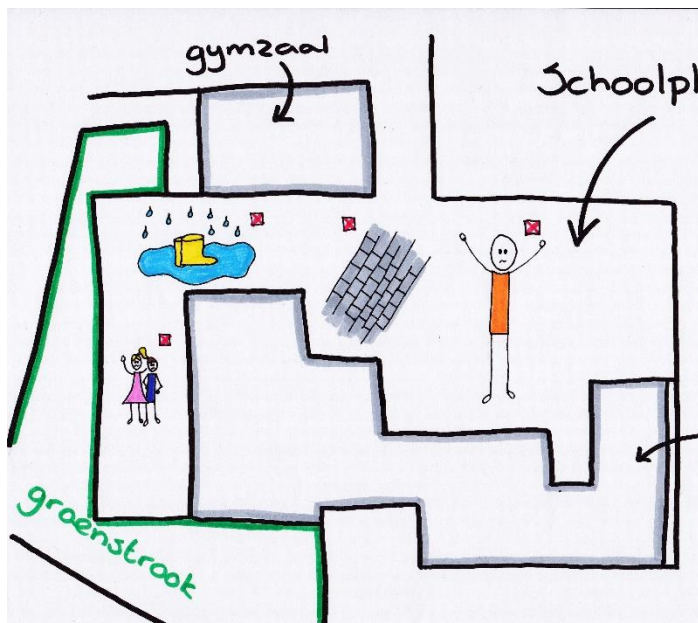 gymzaal
Schoolpl
groenstrook